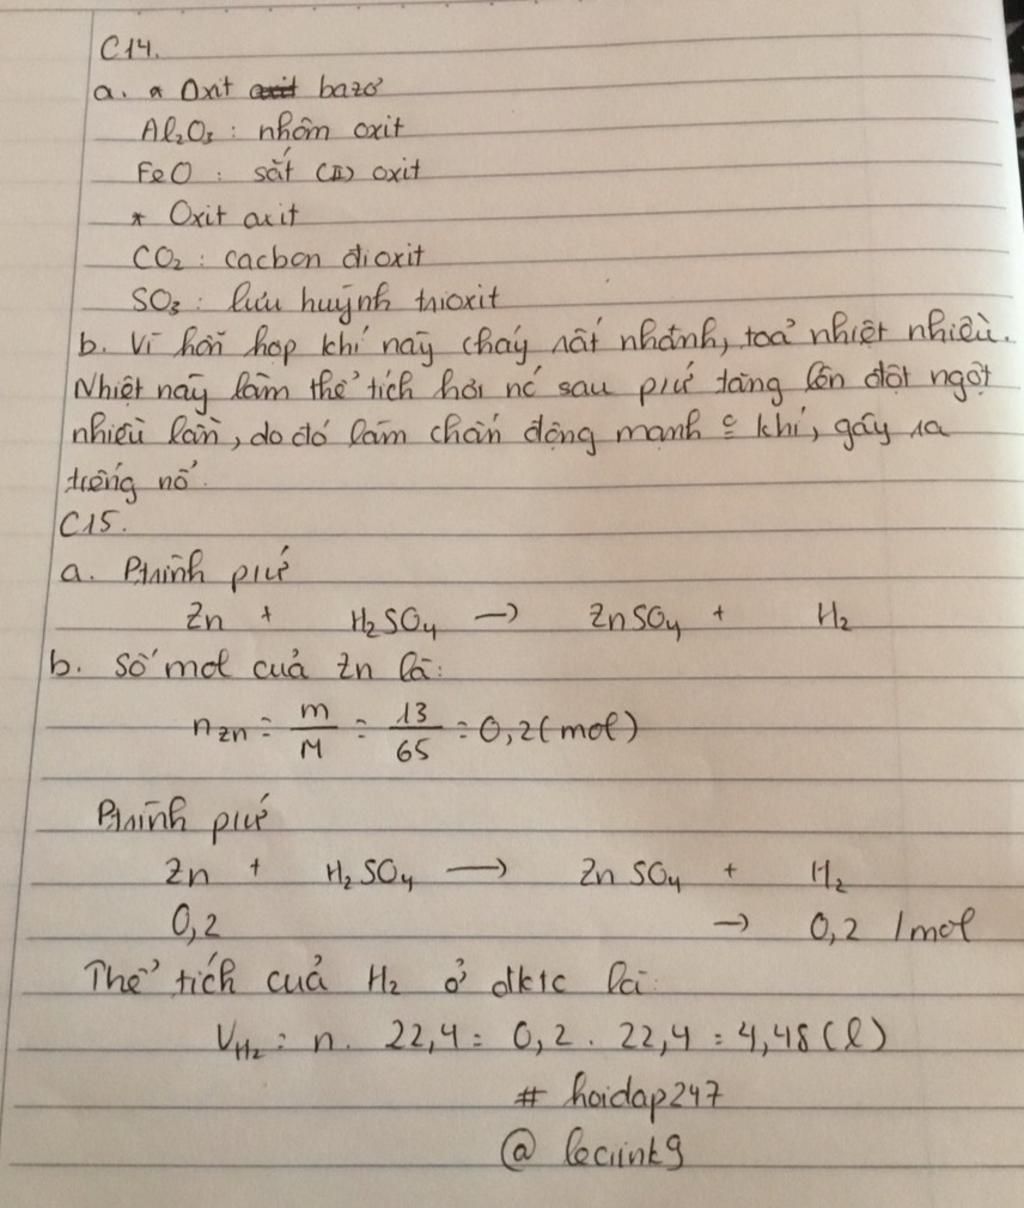 C14.
a. * Oxit axit bazơ
Al₂O₃ : nhôm oxit
FeO : sắt (II) oxit
* Oxit axit
CO₂ : cacbon đioxit
SO₃ : lưu huỳnh trioxit
b. Vì hỗn hợp khí này cháy rất nhanh, toả nhiệt nhiều.
Nhiệt này làm thể tích hơi nc sau pứ tăng lên đột ngột
nhiều lần, do đó làm chấn động mạnh khí, gây ra
tiếng nổ.
C15.
a. Ptrình pứ
Zn + H₂SO₄ → ZnSO₄ + H₂
b. Số mol của Zn là:
n Zn = m/M = 13/65 = 0,2 (mol)
Ptrình pứ
Zn + H₂SO₄ → ZnSO₄ + H₂
0,2 → 0,2 /mol
Thể tích của H₂ ở đktc là:
V H₂ = n. 22,4 = 0,2 . 22,4 = 4,48 (l)
# hoidap247